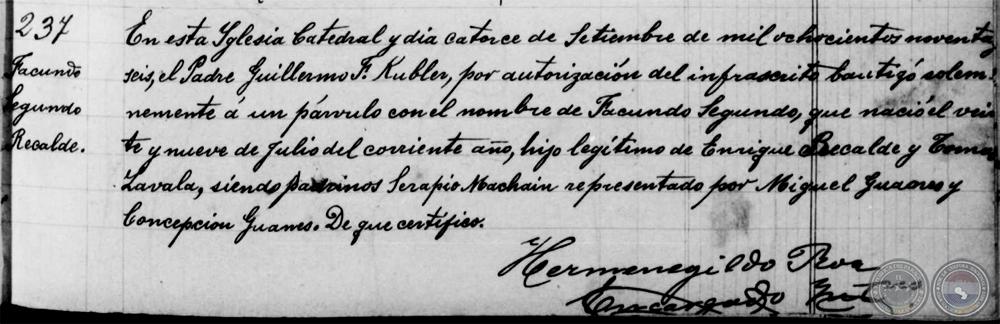 237
Facundo
Segundo
Recalde.
En esta Iglesia Catedral y dia catorce de Setiembre de mil ochocientos noventa y
seis, el Padre Guillermo F. Kubler, por autorización del infrascrito bautizó solem-
nemente á un párvulo con el nombre de Facundo Segundo, que nació el vein-
te y nueve de Julio del corriente año, hijo legítimo de Enrique Recalde y Tomasa
Zavala, siendo padrinos Serapio Machain representado por Miguel Guanes y
Concepcion Guanes. De que certifico.
Hermenegildo Roa